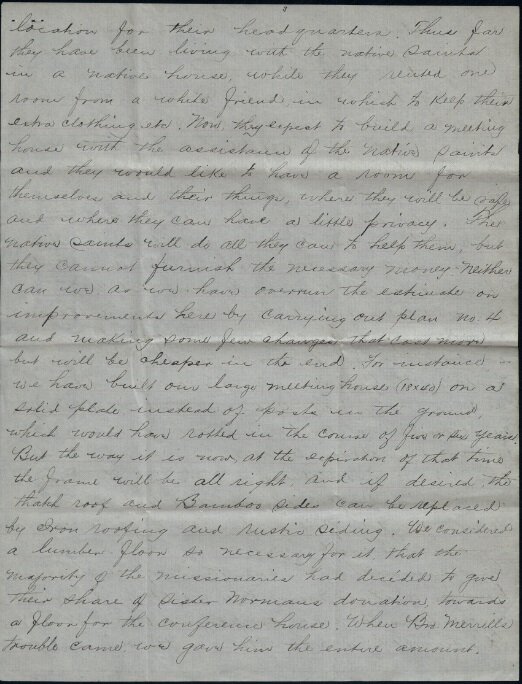 3
location for their headquarters. Thus far
they have been living with the native saints
in a native house, while they rented one
room from a white friend in which to keep their
extra clothing etc. Now they expect to build a meeting
house with the assistance of the native saints
and they would like to have a room for
themselves and their things, where they will be safe
and where they can have a little privacy. The
native saints will do all they can to help them, but
they cannot furnish the necessary money neither
can we as we have overrun the estimate on
improvements here by carrying out plan no. 4
and making some few changes that cost more
but will be cheaper in the end. For instance -
we have built our large meeting house (18x40) on a
solid plate instead of posts in the ground,
which would have rotted in the course of five or six years.
But the way it is now, at the expiration of that time
the frame will be all right, and if desired the
thatch roof and Bamboo sides can be replaced
by Iron roofing and rustic siding. We considered
a lumber floor so necessary for it that the
majority of the missionaries had decided to give
their share of Sister Normans donation towards
a floor for the conference house. When Bro Merrills
trouble came we gave him the entire amount.